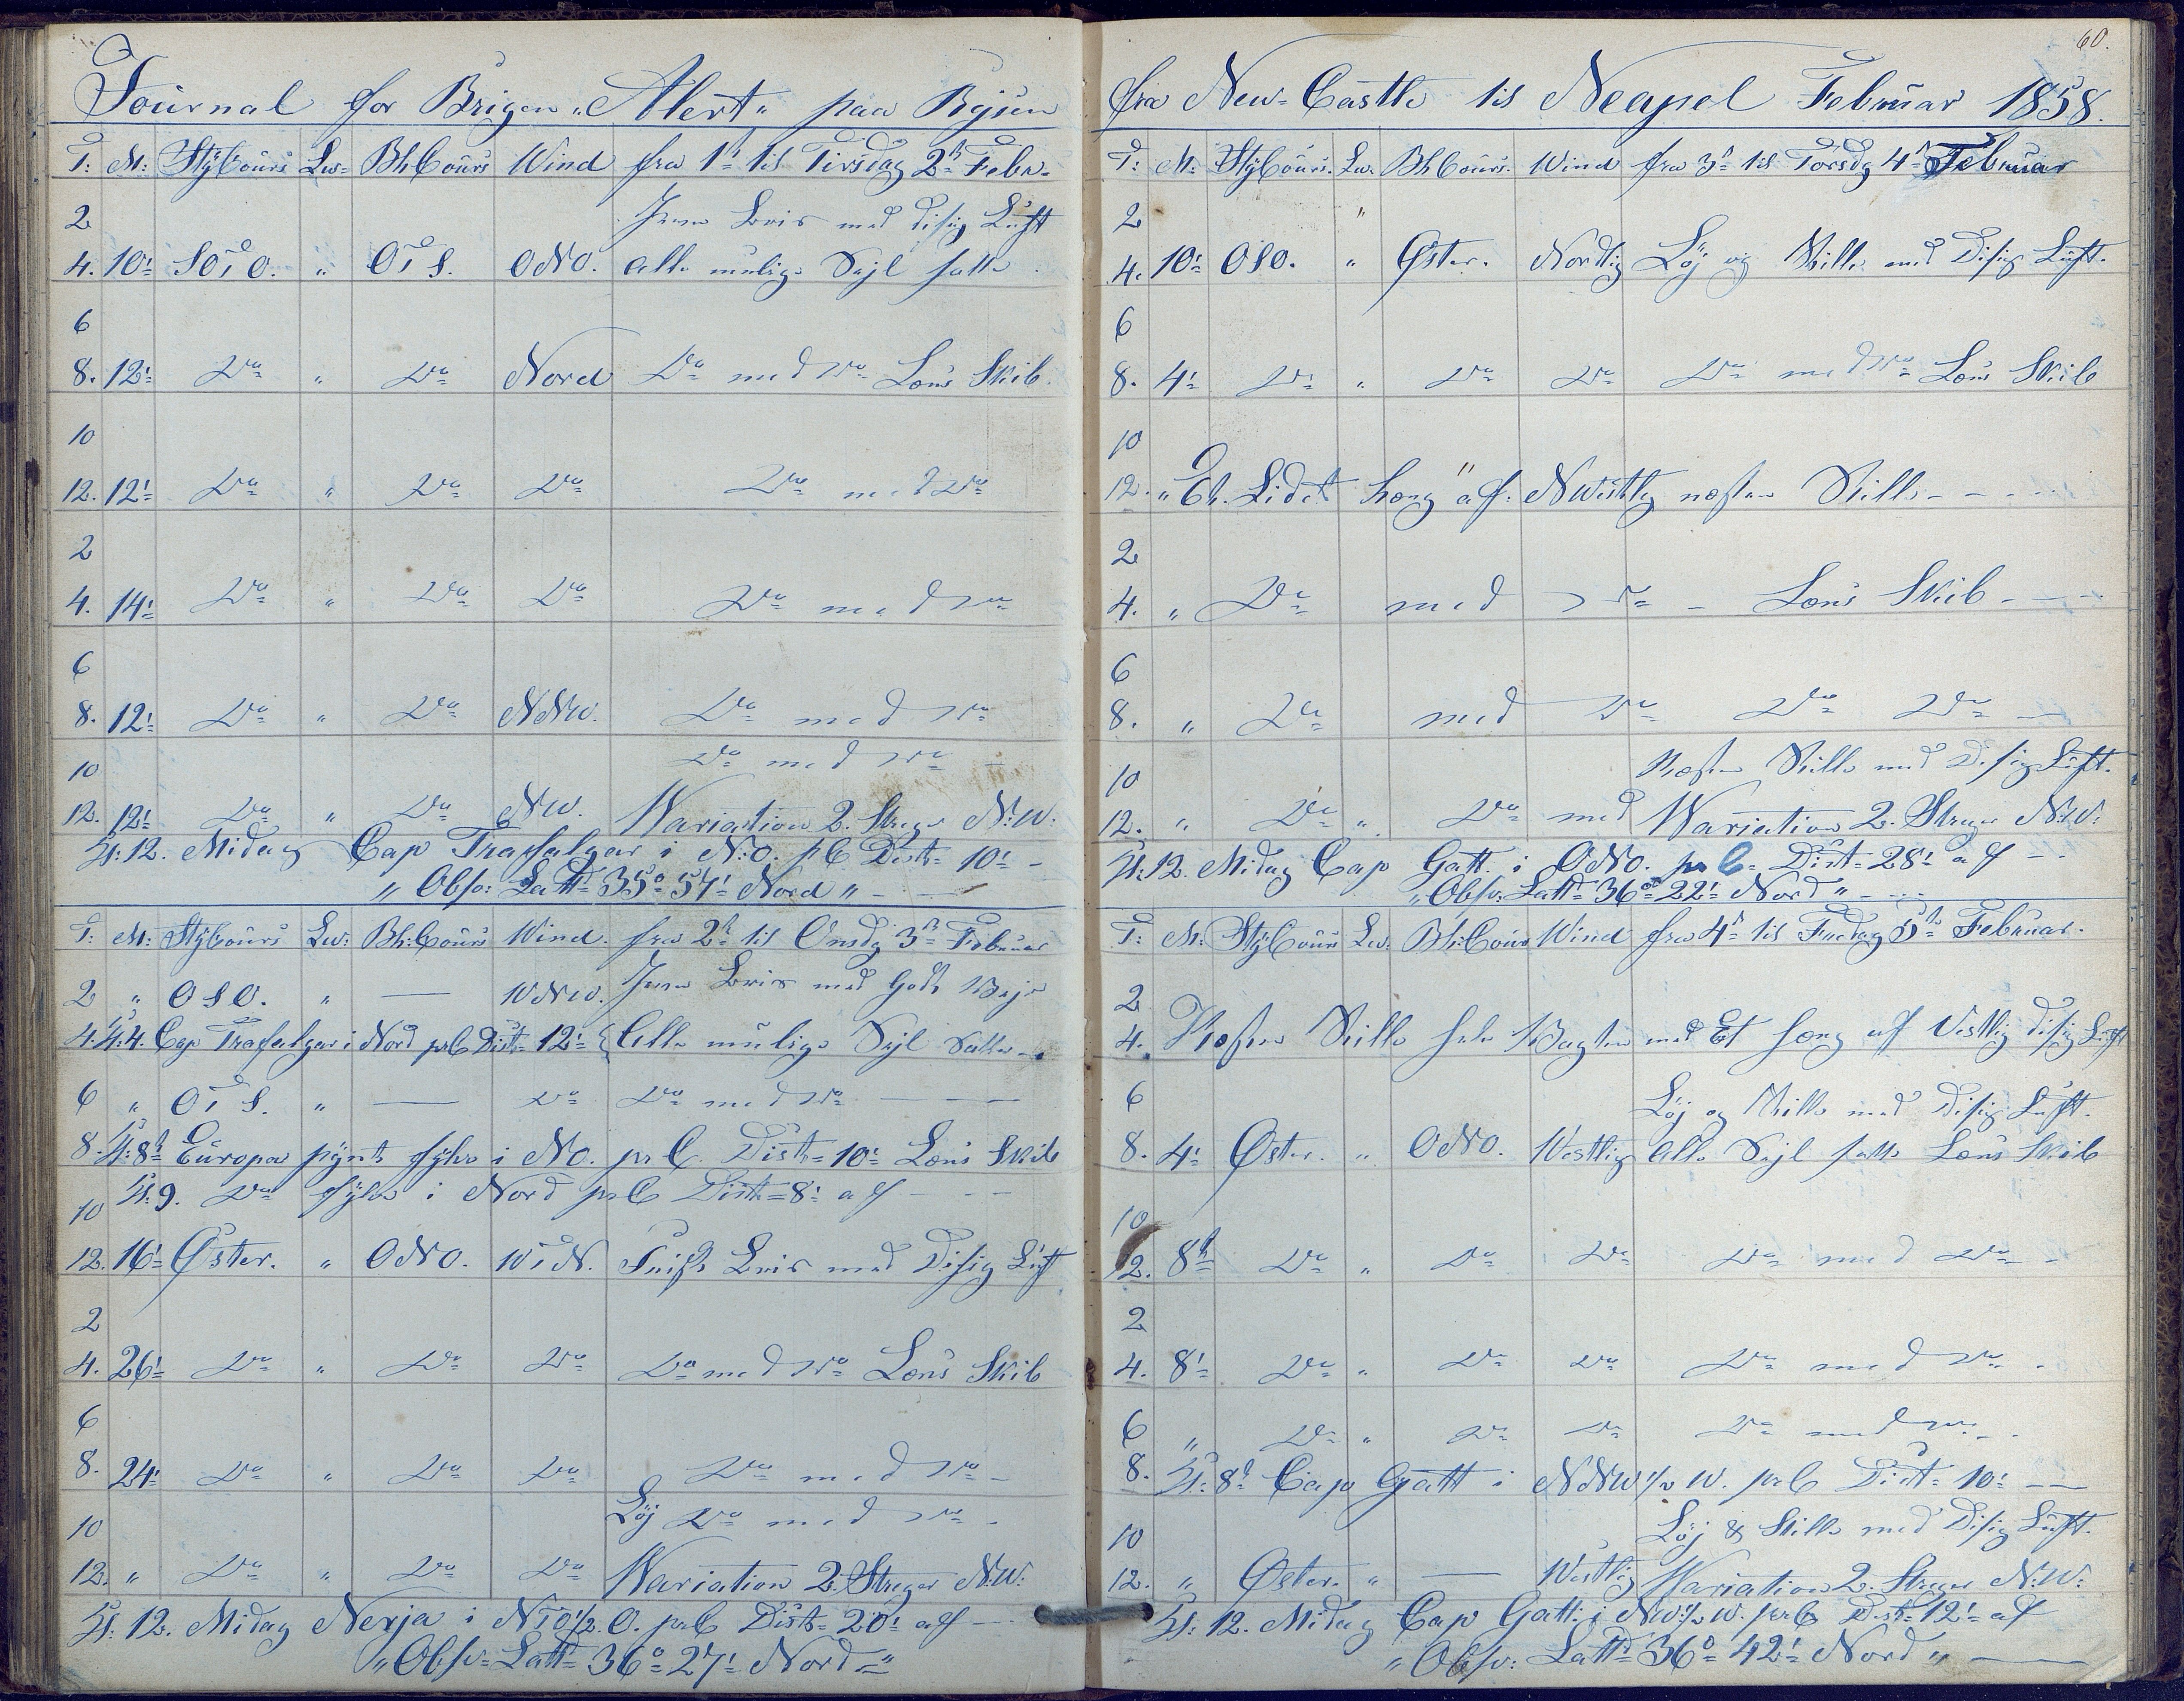 Journal for Brigen „Alert" paa Rejsen
T: M: StyCours Lw= BhCours Wind fra 1ste til Tirsdag 2den Febr.
2 Jevn Bris med disig Luft
4. 10' SOtO. " OtS. ONO. alle mulige Sejl satte
6
8. 12' Do " Do Nord Do med do Læns Skib.
10
12. 12' Do " Do Do Do med do
2
4. 14' Do " Do Do Do med do
6
8. 12' Do " Do NNW. Do med do
10 Do med do
12. 12' Do " Do NW. Wariation 2. Streger N:W.
Kl: 12. Midag Cap Trafalgar i N:O. prC Dist= 10' -
„Obsv: Lattd= 35° 54' Nord" -
T: M: StyCours Lw: Bh:Cours Wind. fra 2den til Onsdg 3die Februar
2 " OSO. " — WNW. Jevn Bris med Godt Vejr
4. Kl:4. Cap Trafalgar i Nord prC Dist= 12' { Alle mulige Sejl satte
6 " OtS. " — Do Do med do — —
8. Kl:8t Europa pynt fyhr i NO. prC. Dist= 10' Læns Skib
10 Kl:9. Do fyhr i Nord prC Dist= 8' af - - -
12. 16' Øster. " ONO. WtN. Frisk Bris med Disig Luft
2
4. 26' Do " Do Do Do med do Læns Skib
6
8. 24' Do " Do Do Do med do -
10 Løj Do med do -
12. " Do " Do Do Wariation 2. Streger N:W:
Kl: 12. Midag Nerja i NtO½.O. prC Dist= 20' af -
„Obsv= Lattd= 36° 27' Nord="
60.
fra New-Castle til Neapel Februar 1858.
T: M: StyCours. Lw. BhCours. Wind fra 3die til Torsdg 4de Februar
2 "
4. 10' OSO. " Øster. Nordlig Løj og Stille med Disig Luft.
6
8. 4' Do " Do Do Do med do Læns Skib
10
12. " „Et. Lidet hæng" af: NWestlig næsten Stille - - -
2
4. " Do med do - Læns Skib - - -
6
8. " Do med Do Do Do -
10 Næsten Stille med Disig Luft.
12. " Do " Do med Wariation 2. Streger N:W:
Kl:12. Midag Cap Gatt. i ONO. prC= Dist= 28' af - -
„Obsv: Lattd 36° 22' Nord" - - -
T: M: StyCours Lw. Bh:Cours Wind fra 4de til Fredag 5te Februar.
2
4. Næsten Stille hele Vagten med Et hæng af Vestlig disig Luft
6 Løj og Stille med Disig Luft.
8. 4' Øster. " ONO. Westlig Alle Sejl satte Læns Skib
10
12. 8' Do " Do Do Do med Do -
2
4. 8' Do " Do Do Do med do.
6 " Do " Do Do Do med do -
8. Kl: 8t Cap Gatt i NNW½W. prC Dist= 10' —
10 Løj & Stille med Disig Luft.
12. " Øster. " — Westlig Wariation 2. Streger N:W:
Kl: 12. Midag Cap Gatt: i NW½W. prC Dist= 12' af
„Obsv: Lattd= 36° 42' Nord" —